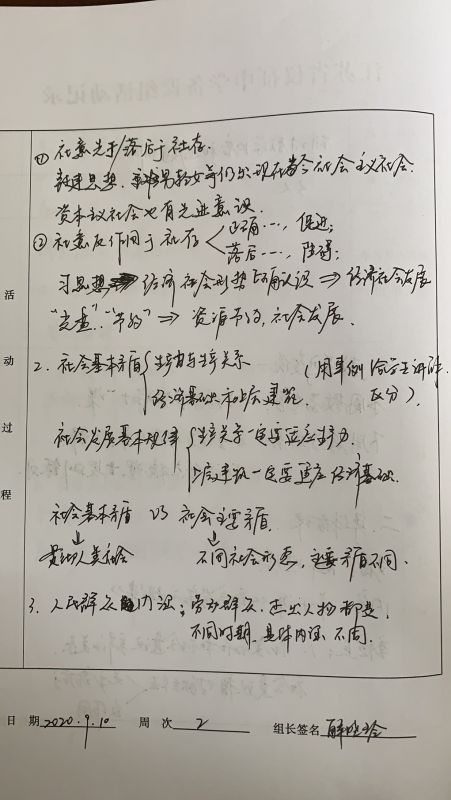 ① 社意先于/落后于社存.
封建思想、重男轻女等仍出现在当今社会主义社会.
资本主义社会也有先进意识.
② 社意反作用于社存 正确…, 促进;
落后…, 阻碍;
习思想 经济社会形势正确认识 ⇒ 经济社会发展
"光盘". "节约" ⇒ 资源节约, 社会发展.
活
动
过
程
2. 社会基本矛盾 生产力与生产关系 (用事例给学生讲解.
经济基础和上层建筑. 区分).
社会发展基本规律 生产关系一定要适应生产力
上层建筑一定要适应经济基础.
社会基本矛盾 VS 社会主要矛盾.
↓ ↓
贯彻人类社会 不同社会形态, 主要矛盾不同.
3. 人民群众 内涵: 劳动群众、杰出人物都是,
不同时期, 具体内涵不同.
日 期 2020.9.10 周 次 2 组长签名